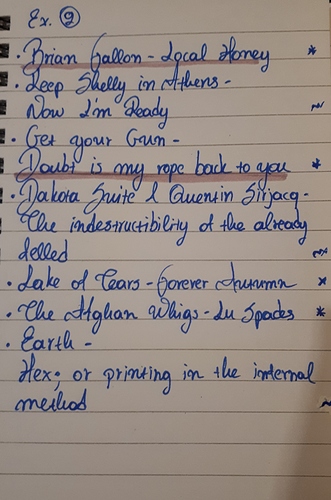 Ex. 9
• Brian Gallon - Local Honey *
• Keep Shelly in Athens -
Now I'm Ready ~
• Get your Gun -
Doubt is my rope back to you *
• Dakota Suite & Quentin Sirjacq -
The indestructibility of the already
felled ~
• Lake of Tears - Forever Autumn *
• The Afghan Whigs - In Spades *
• Earth -
Hex; or printing in the internal
method ~